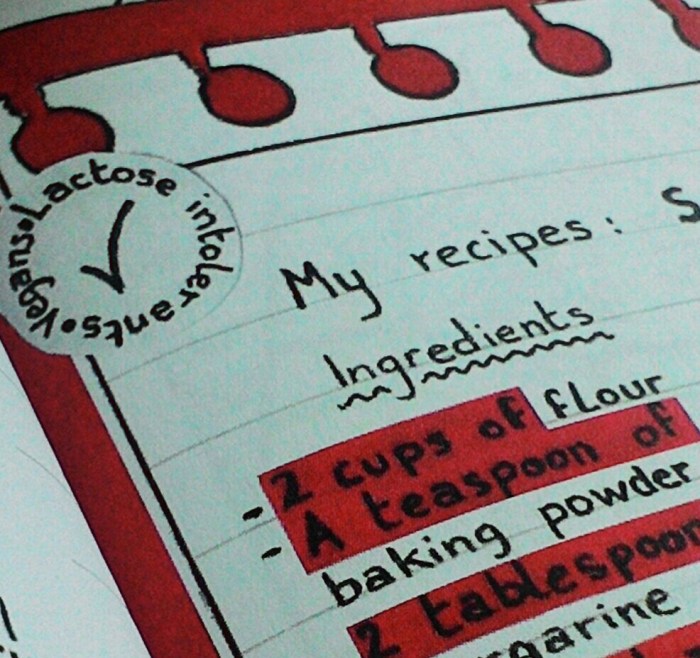 Lactose intolerants • vegans •
✓
My recipes:
Ingredients
- 2 cups of flour
- A teaspoon of
baking powder
2 tablespoon